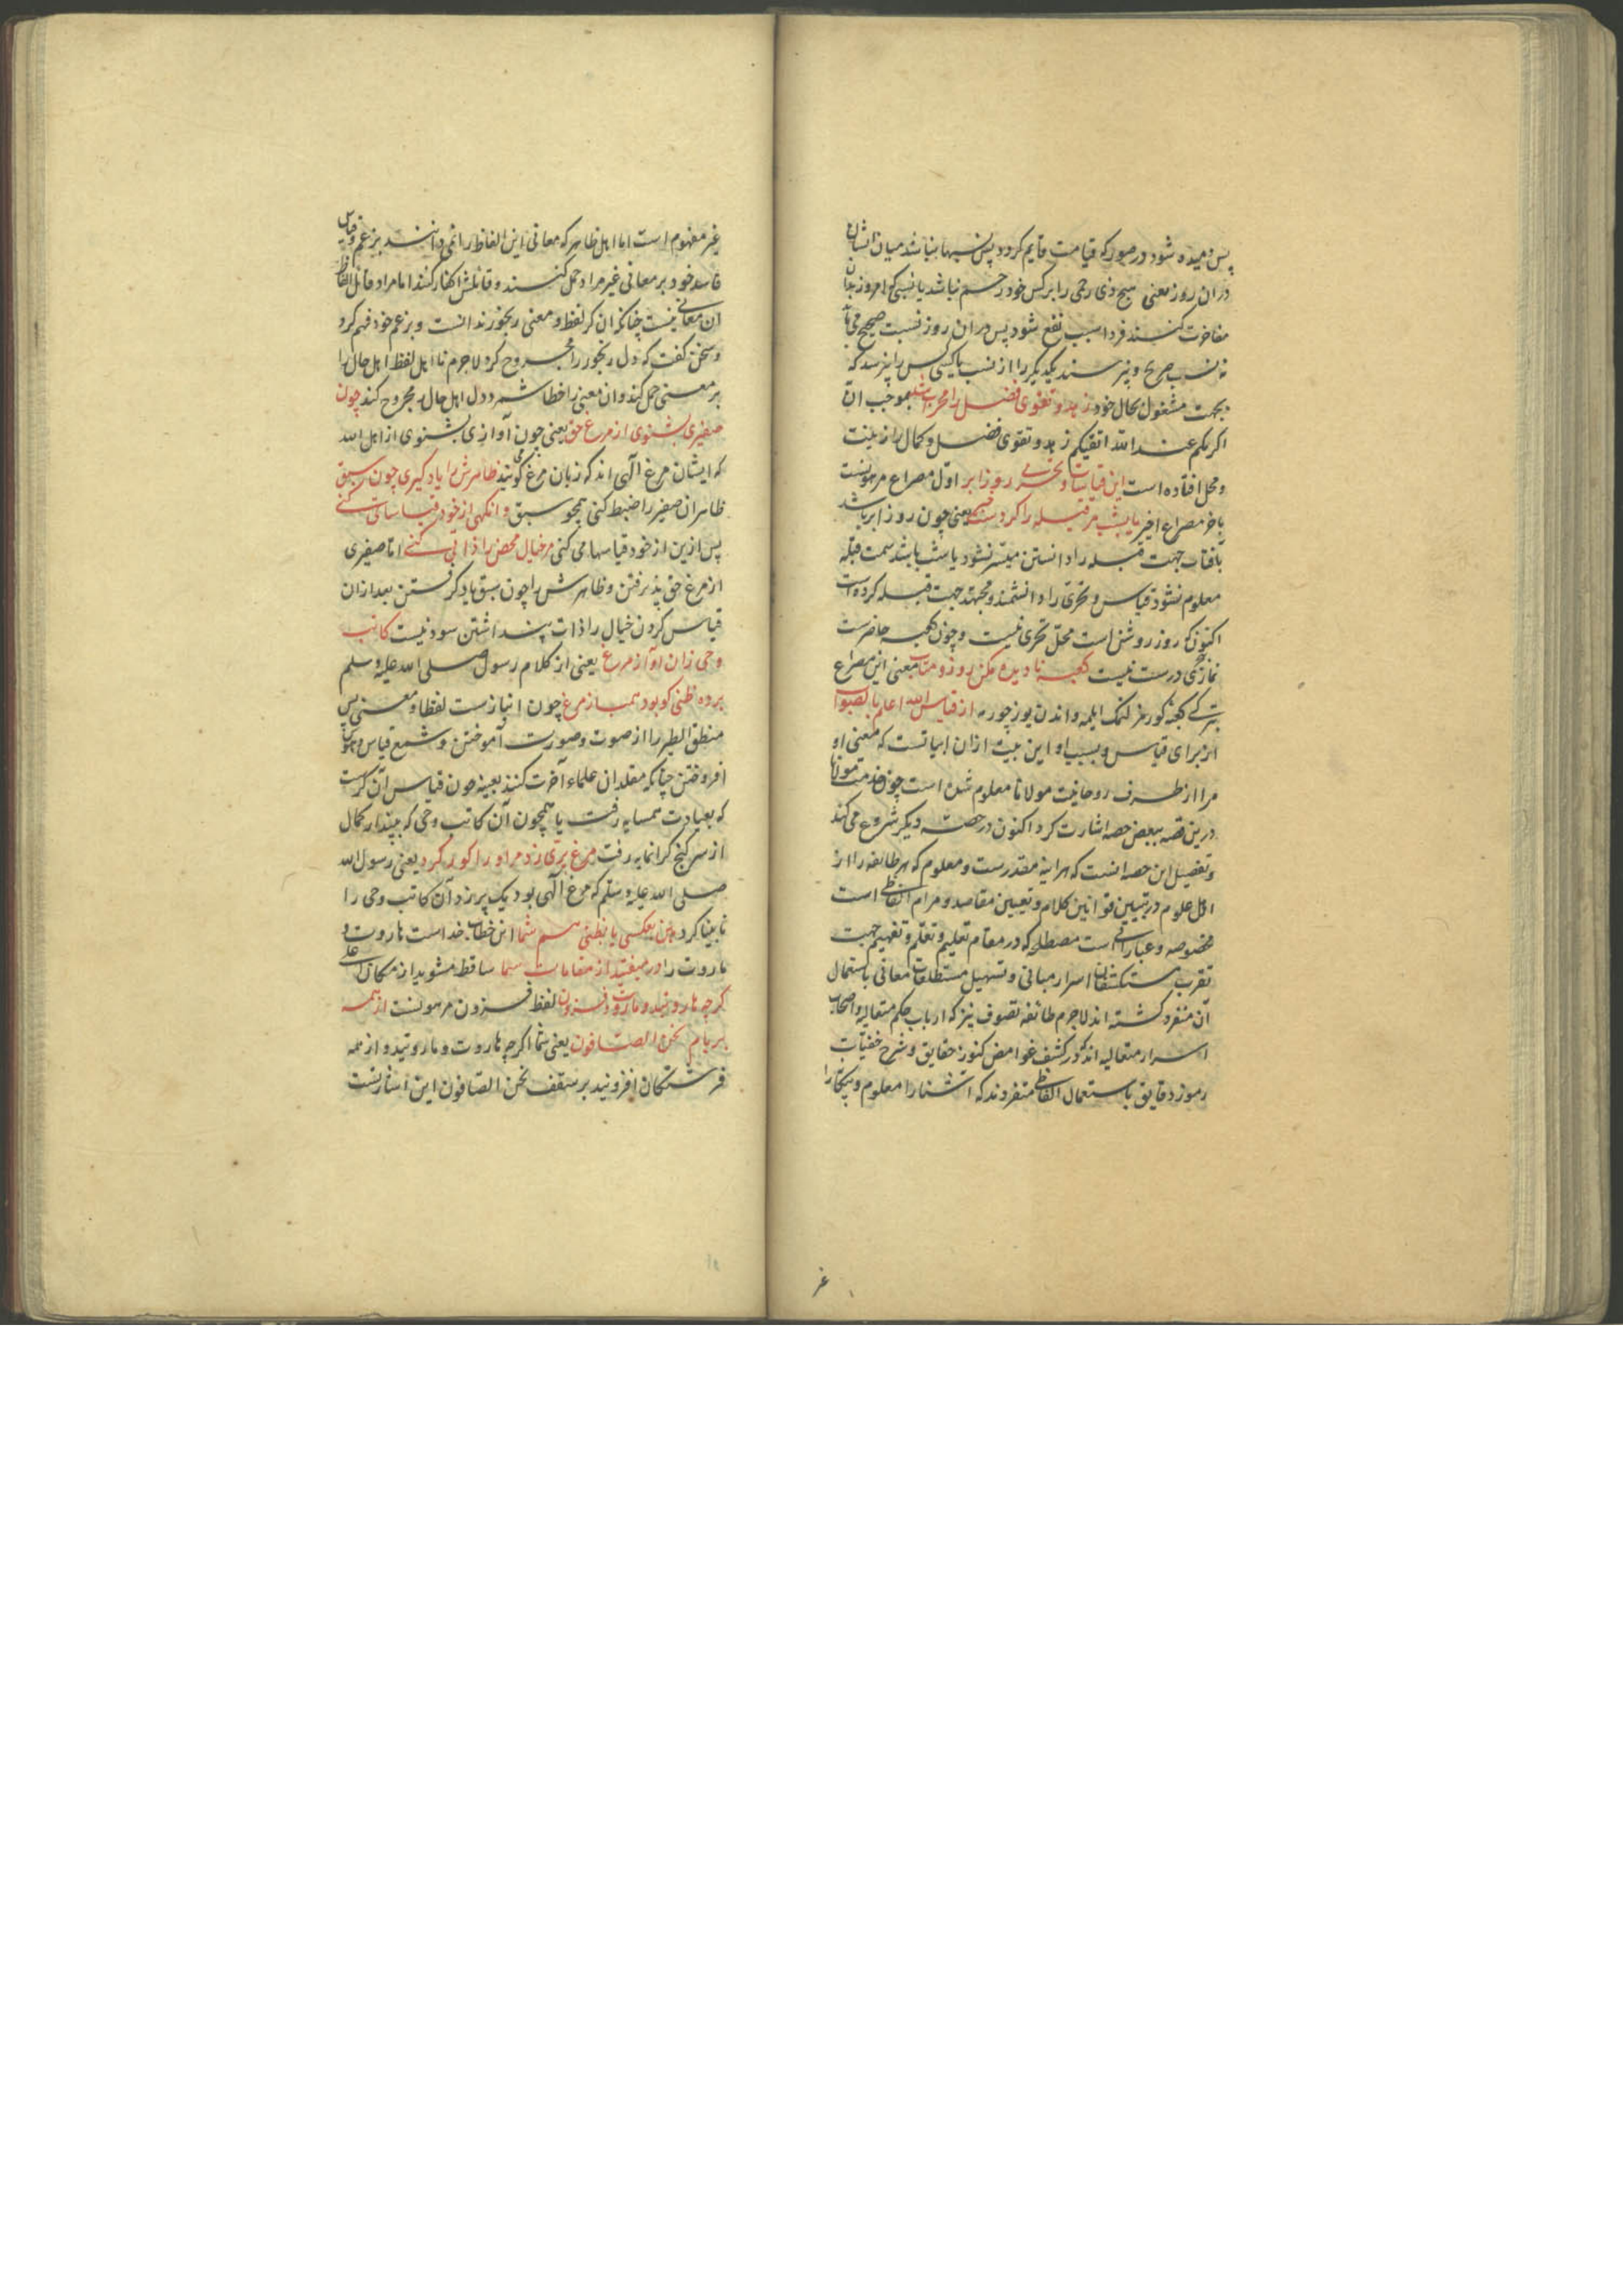 پس دمیده شود در صور که قیامت قایم کردد پس نسبها نباشد میان ایشان
در ان روز یعنی هیچ ذی رحمی را بر کس خود رحم نباشد یا نسبی که امروز بدان
مفاخرت کنند فردا سبب نفع شود پس در ان روز نسبت صحیح می باید
نه نسب صریح و نپرسند یکدیکر را از نسب یا کسی کس را نپرسد که
بجهت مشغول بحال خود زهد و تقوی فضل را محراب شد بموجب ان
اکرمکم عند الله اتقیکم زهد و تقوی فضل و کمال را زینت
و محل افتاده است این قیاسات و تحری روز ابر اول مصراع مرهونست
باخر مصراع اخیر یا بشب مر قبله را کردست حبر یعنی چون روز ابر باشد
بآفتاب جهت قبله را دانستن میسر نشود یا شب باشد سمت قبله
معلوم نشود قیاس و تحری را دانشمند و مجتهد جهت قبله کرده است
اکنون که روز روشن است محل تحری نیست و چون کعبه حاضرست
نماز تحری درست نیست کعبه نادیده مکن رو زو متاب معنی این مصراع
بترکی کعبه کورمز لنک ایلمه و اندن یوز چورمه از قیاس الله اعلم بالصواب
از برای قیاس و بسبب او این بیت ازان ابیاتست که معنی او
مرا از طرف روحانیت مولانا معلوم شده است چون خدمت مولانا
درین قصه ببعض حصه اشارت کرد اکنون در حصه دیکر شروع می کند
و تفصیل این حصه انست که هراینه مقدرست و معلوم که هر طائفه را از
اهل علوم در تبیین قوانین کلام و تعیین مقاصد و مرام الفاظی است
مخصوصه و عباراتی است مصطلحه که در مقام تعلیم و تعلم و تفهیم جهت
تقرب مستکشفان اسرار مبانی و تسهیل مستطلعان معانی باستعمال
آن منفرد کشته اند لاجرم طائفه تصوف نیز که ارباب حکم متعالیه و اصحاب
اسرار متعالیه اند که در کشف غوامض کنوز حقایق و شرح خفیات
رموز دقایق باستعمال الفاظی متفردند که آشنا را معلوم و بیکانه را
غیر
غیر مفهوم است اما اهل ظاهر که معانی این الفاظ را نمی دانند بزعم و قیاس
فاسد خود بر معانی غیر مراد حمل کنند و قائلش اکفار کنند اما مراد قائل الفاظ
آن معانی نیست چنانکه ان کر لفظ و معنی رنجور ندانست و بزعم خود فهم کرد
و سخن کفت که دل رنجور را مجروح کرد لاجرم نااهل لفظ اهل حال را
بر معنی حمل کند و ان معنی را خطا شمرد و دل اهل حال را مجروح کند چون
صفیری بشنوی از مرغ حق یعنی چون آوازی بشنوی از اهل الله
که ایشان مرغ الهی اند که زبان مرغ می کویند ظاهرش را یاد کیری چون سبق
ظاهر ان صفیر را ضبط کنی همچو سبق وانکهی از خود قیاساتی کنی
پس ازین از خود قیاسها می کنی مر خیال محض را ذاتی کنی اما صفیری
از مرغ حق پذیرفتن و ظاهرش را چون سبق یاد کرفتن بعد ازان
قیاس کردن خیال را ذات پنداشتن سود نیست کاتب
وحی زان آواز مرغ یعنی از کلام رسول صلی الله علیه وسلم
برده ظنی کو بود همباز مرغ چون انبازست لفظا و معنی پس
منطق الطیر را از صوت و صورت آموختن و شمع قیاس و هوس
افروختن چنانکه مقلدان علماء آخرت کنند بعینه چون قیاس آن کرست
که بعیادت همسایه رفت یا همچون آن کاتب وحی که بپندار کمال
از سر کنج کرانمایه رفت مرغ پری زد مر او را کور کرد یعنی رسول الله
صلی الله علیه وسلم که مرغ الهی بود یک پر زد آن کاتب وحی را
نابینا کرد هین بعکسی یا بظنی هم شما این خطاب خداست هاروت و
ماروت را در میفتید از مقامات سما ساقط مشوید از مکان اعلی
کرچه هاروتید و ماروت و فزون لفظ فزون مرهونست از همه
بر بام نحن الصافون یعنی شما اکرچه هاروت و ماروتید و از همه
فرشتکان افزونید بر سقف نحن الصافون این اشارتست